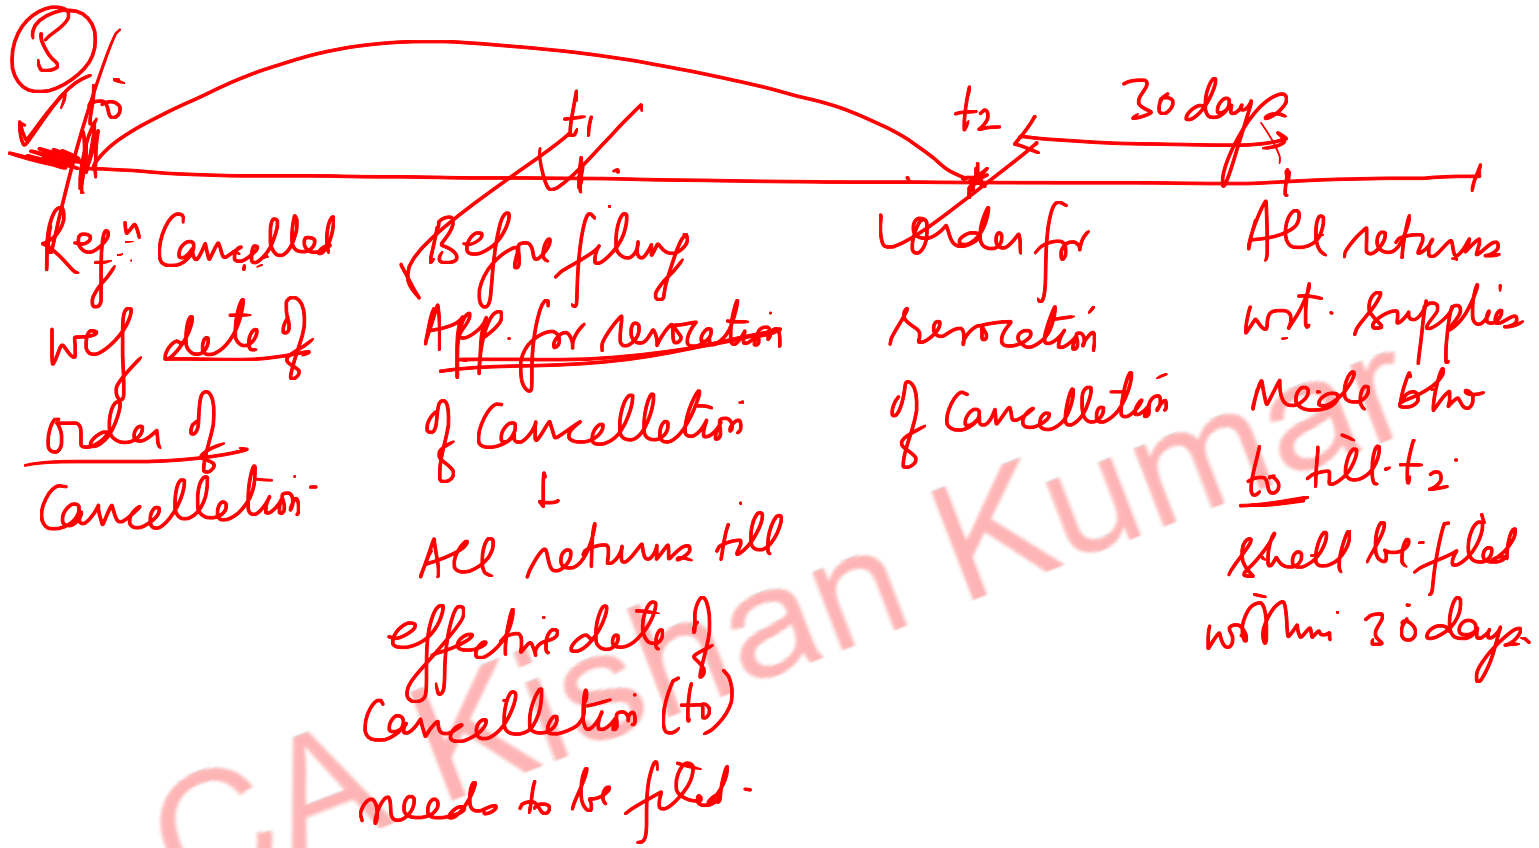 B
t0
t1
t2
30 days
Regn Cancelled
wef date of
order of
Cancellation
Before filing
App. for revocation
of Cancellation
All returns till
effective date of
Cancellation (to)
needs to be filed.
Order for
revocation
of Cancellation
All returns
wrt. supplies
Made b/w
to till t2
shall be filed
within 30 days.
CA Kishan Kumar